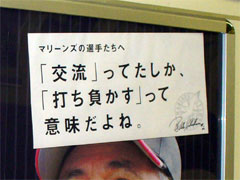 マリーンズの選手たちへ
「交流」ってたしか、
「打ち負かす」って
意味だよね。